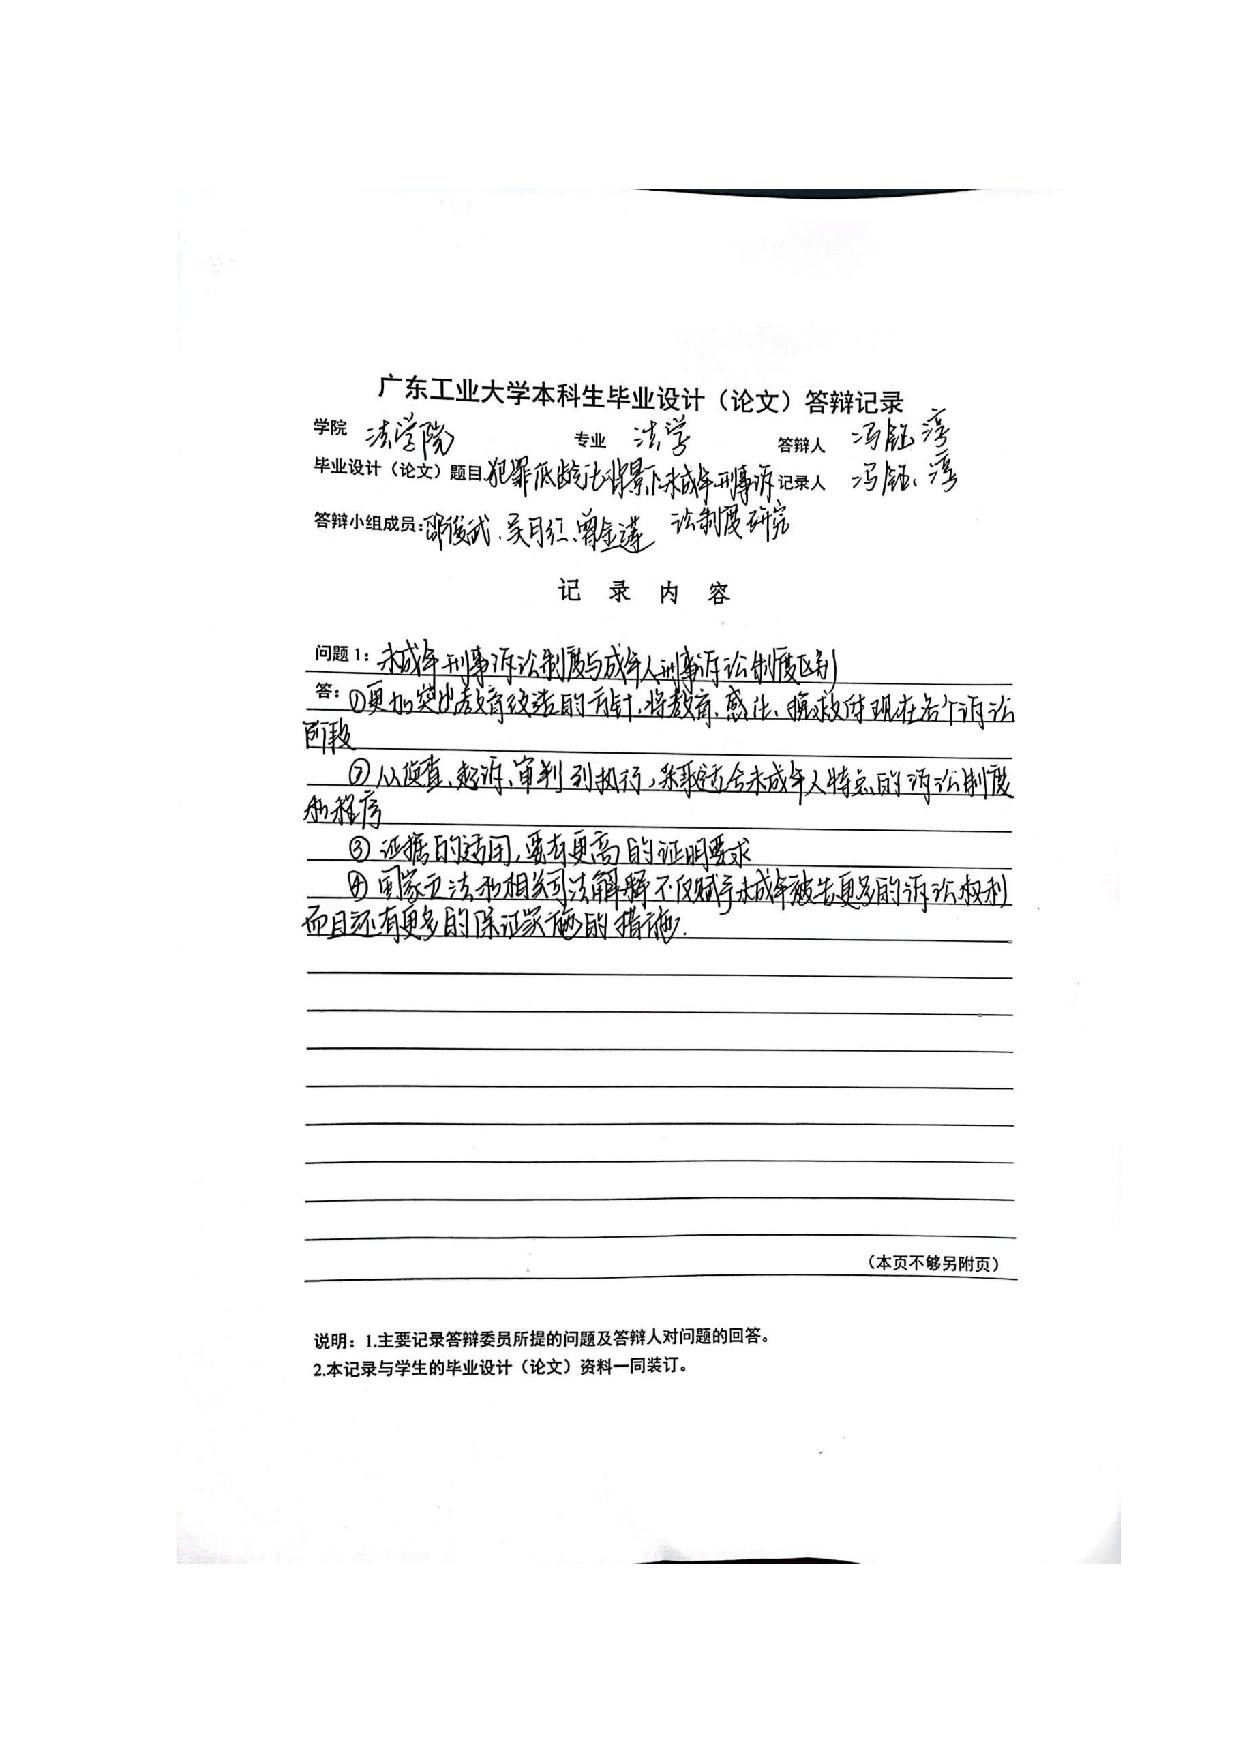 广东工业大学本科生毕业设计（论文）答辩记录
学院 法学院 专业 法学 答辩人 冯钰淳
毕业设计（论文）题目 犯罪低龄化背景下未成年刑事诉 记录人 冯钰淳
答辩小组成员：邵俊武、吴月红、曾金莲 讼制度研究
记 录 内 容
问题 1：未成年刑事诉讼制度与成年人刑事诉讼制度区别
答：①更加突出教育改造的方针，将教育、感化、挽救体现在各个诉讼
阶段
②从侦查、起诉、审判到执行，采取适合未成年人特点的诉讼制度
和程序
③证据的适用，要有更高的证明要求
④国家立法和相关司法解释不仅赋予未成年被告更多的诉讼权利
而且还有更多的保证实施的措施.
（本页不够另附页）
说明：1.主要记录答辩委员所提的问题及答辩人对问题的回答。
2.本记录与学生的毕业设计（论文）资料一同装订。